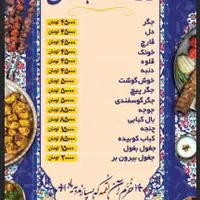 جگر ۴۵۰۰۰ تومان
دل ۴۵۰۰۰ تومان
قارچ ۴۵۰۰۰ تومان
خوئک ۴۵۰۰۰ تومان
قلوه ۴۵۰۰۰ تومان
دنبه ۴۵۰۰۰ تومان
خوش گوشت ۵۰۰۰۰ تومان
جگر پیچ ۵۰۰۰۰ تومان
جگر گوسفندی ۵۰۰۰۰ تومان
جوجه ۸۵۰۰۰ تومان
بال کبابی ۸۵۰۰۰ تومان
چنجه ۱۵۰۰۰۰ تومان
کباب کوبیده ۸۵۰۰۰ تومان
جغول بغول ۱۵۰۰۰۰ تومان
جغول بیرون بر ۲۰۰۰۰۰ تومان